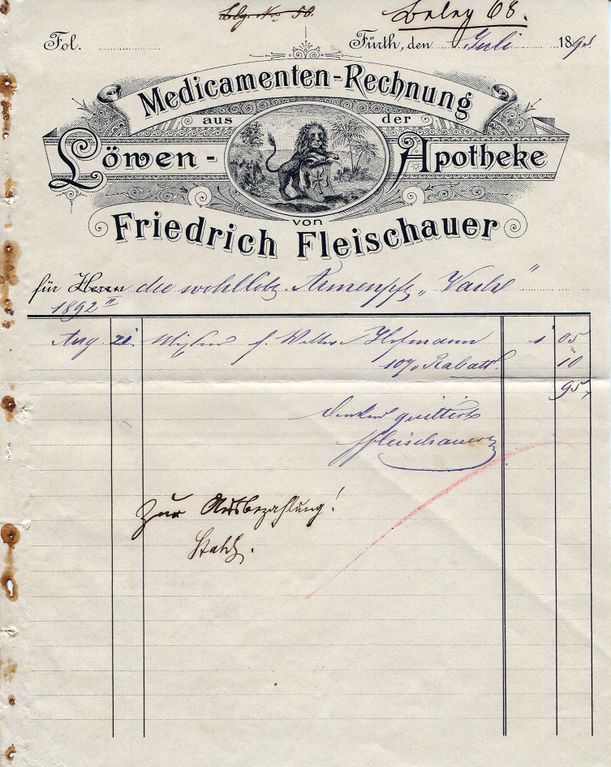 Blg. Nr. 58.
Beleg 68.
Fol.
Fürth, den Juli 189
Medicamenten-Rechnung
aus der
Löwen-Apotheke
von
Friedrich Fleischauer
für Herrn die wohllöbl. Armenpflg
1892
Aug. 21. f. Hofmann 1 05
10% Rabatt. 10
95
dankend quittirt
Fleischauer
Zur Ausbezahlung!